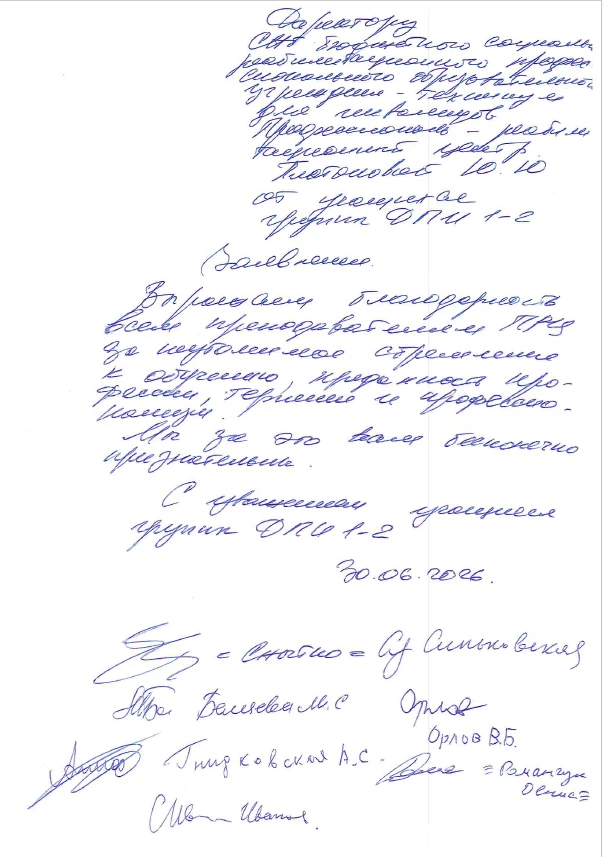 Директору
СПб бюджетного социальн
реабилитационного профес
сионального образовательного
учреждения - техникум
для инвалидов
Профессионально - реабили
тационный центр
Платоновой Ю.Ю
от учащихся
группы ДПИ 1-2
Заявление.
Выражаем благодарность
всем преподавателям ПРЦ
за неутомимое стремление
к обучению, преданность про-
фессии, терпение и професио-
нализм.
Мы за это вам бесконечно
признательны.
С уважением учащиеся
группы ДПИ 1-2
30.06.2026.
= Сынтко = Синьковская
Беляева М.С Орлов
Орлов В.Б.
Гнидковская А.С.
= Романчук
Денис =
Иванов.